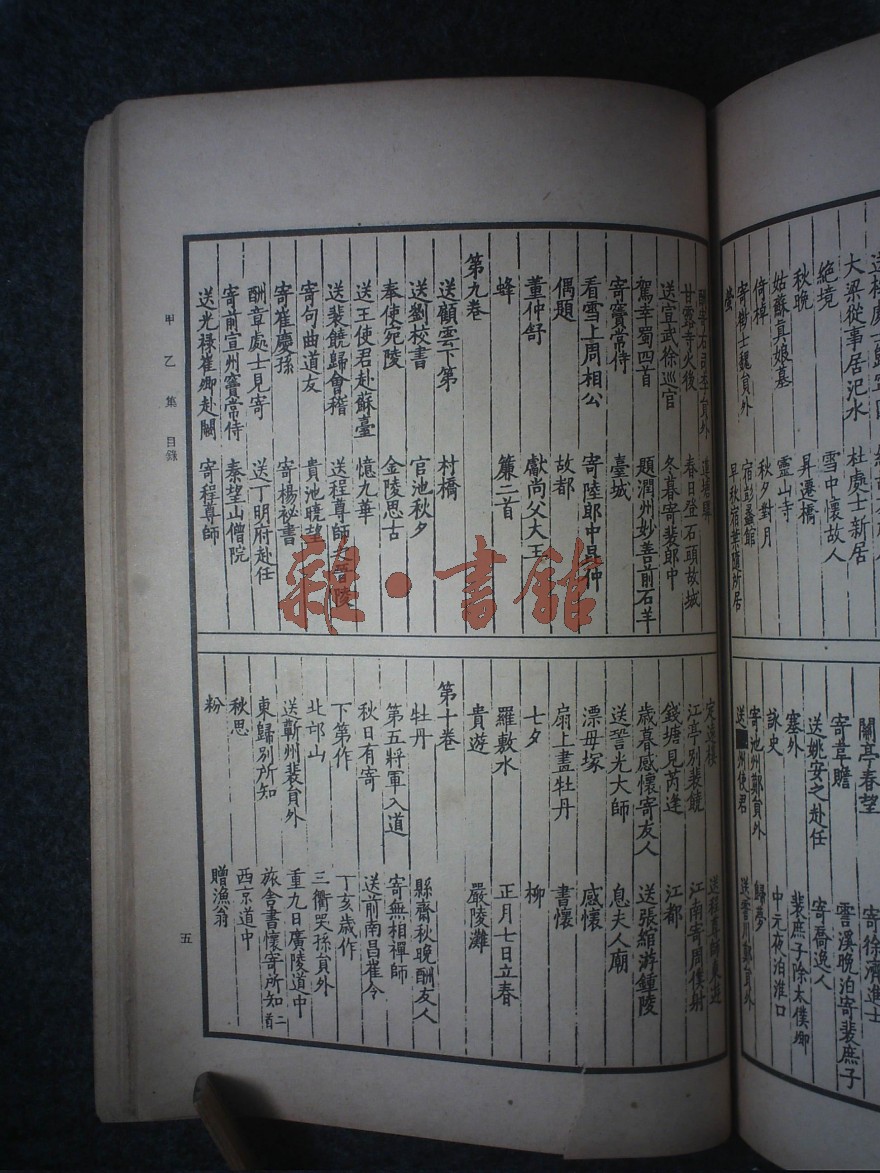 大梁從事居汜水
杜處士新居
絕境
雪中懷故人
秋晚
昇遷橋
姑蘇真娘墓
靈山寺
倚棹
秋夕對月
寄謝士魏員外
宿彭蠡館
螢
早秋宿葉墮所居
闌亭春望
寄徐濟進士
寄韋贍
霅溪晚泊寄裴庶子
送姚安之赴任
寄喬逸人
塞外
裴庶子除太僕卿
詠史
中元夜泊淮口
寄池州鄭員外
歸夢
送■州使君
送霅川鄭員外
甘露寺火後
春日登石頭故城
送宣武徐巡官
冬暮寄裴郎中
駕幸蜀四首
題潤州妙善前石羊
寄竇常侍
臺城
看雪上周相公
寄陸郎中昆仲
偶題
故都
董仲舒
獻尚父大王
蜂
簾二首
第九卷
送顧雲下第
村橋
送劉校書
官池秋夕
奉使宛陵
金陵思古
送王使君赴蘇臺
憶九華
送裴饒歸會稽
送程尊師之晉陵
寄句曲道友
貴池曉望
寄崔慶孫
寄楊祕書
酬章處士見寄
送丁明府赴任
寄前宣州竇常侍
秦望山僧院
送光祿崔卿赴闕
寄程尊師
定遠樓
送程尊師東遊
江亭別裴饒
江南寄周僕射
錢塘見芮逢
江都
歲暮感懷寄友人
送張綰游鍾陵
送䛒光大師
息夫人廟
漂母塚
感懷
扇上畫牡丹
書懷
七夕
柳
羅敷水
正月七日立春
貴遊
嚴陵灘
第十卷
牡丹
縣齋秋晚酬友人
第五將軍入道
寄無相禪師
秋日有寄
送前南昌崔令
下第作
丁亥歲作
北邙山
三衢哭孫員外
送蘄州裴員外
重九日廣陵道中
東歸別所知
旅舍書懷寄所知二首
秋思
西京道中
粉
贈漁翁
甲乙集 目錄
五
雜·書館